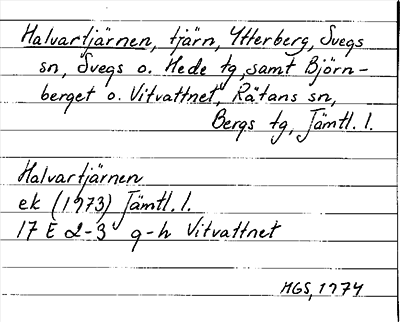 Halvartjärnen, tjärn, Ytterberg, Svegs
sn, Svegs o. Hede tg, samt Björn-
berget o. Vitvattnet, Rätans sn,
Bergs tg, Jämtl. l.
Halvartjärnen
ek (1973) Jämtl. l.
17 E 2-3 g-h Vitvattnet
MGS, 1974